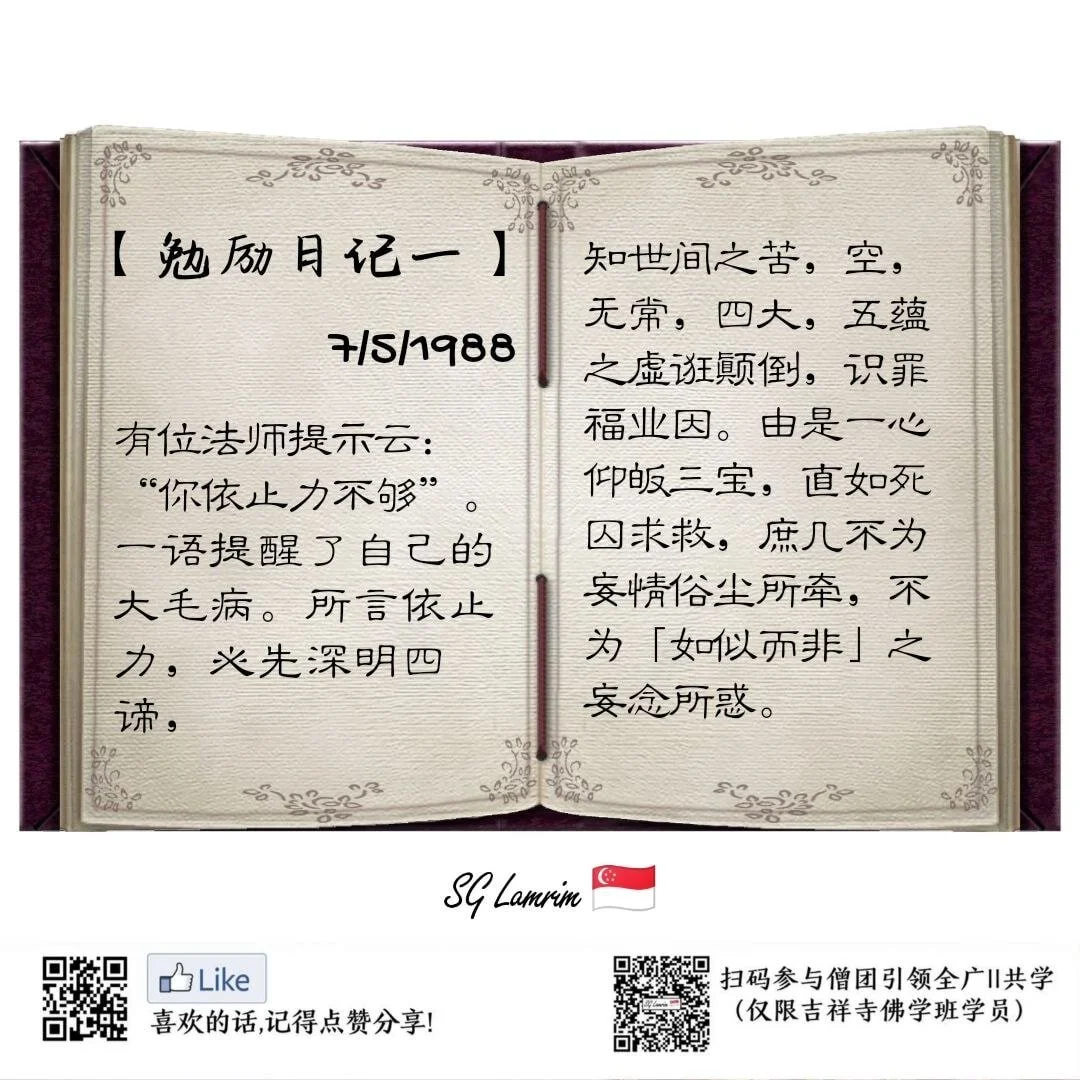 【勉励日记一】
7/5/1988
有位法师提示云：
“你依止力不够”。
一语提醒了自己的
大毛病。所言依止
力，必先深明四
谛，
知世间之苦，空，
无常，四大，五蕴
之虚诳颠倒，识罪
福业因。由是一心
仰皈三宝，直如死
囚求救，庶几不为
妄情俗尘所牵，不
为「如似而非」之
妄念所惑。
SG Lamrim
Like
喜欢的话,记得点赞分享!
SG Lamrim
扫码参与僧团引领全广II共学
（仅限吉祥寺佛学班学员）